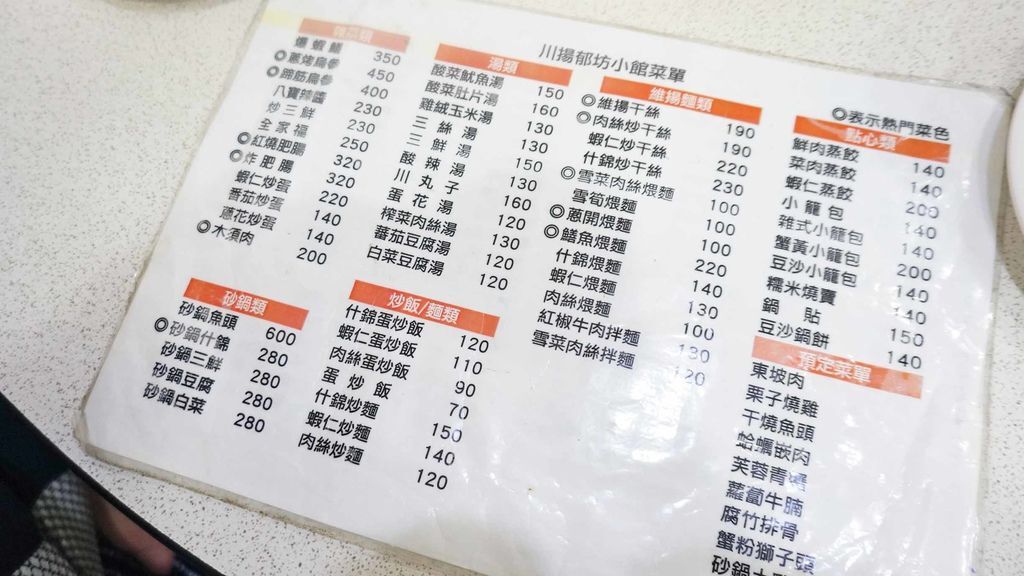 川揚郁坊小館菜單
◎表示熱門菜色
爆蝦鱔 350
◎蔥烤烏參 450
◎蹄筋烏參 400
八寶辣醬 230
炒三鮮 230
全家福 250
◎紅燒肥腸 320
◎炸肥腸 320
蝦仁炒蛋 220
番茄炒蛋 140
蔥花炒蛋 140
◎木須肉 200
砂鍋類
砂鍋魚頭 600
◎砂鍋什錦 280
砂鍋三鮮 280
砂鍋豆腐 280
砂鍋白菜 280
湯類
酸菜魷魚湯 150
酸菜肚片湯 160
雞絨玉米湯 130
三絲湯 130
三鮮湯 150
酸辣湯 130
川丸子 160
蛋花湯 120
榨菜肉絲湯 130
蕃茄豆腐湯 120
白菜豆腐湯 120
炒飯/麵類
什錦蛋炒飯 120
蝦仁蛋炒飯 110
肉絲蛋炒飯 90
蛋炒飯 70
什錦炒麵 150
蝦仁炒麵 140
肉絲炒麵 120
維揚麵類
◎維揚干絲 190
◎肉絲炒干絲 190
蝦仁炒干絲 220
什錦炒干絲 230
◎雪菜肉絲煨麵 100
雪筍煨麵 100
◎蔥開煨麵 100
◎鱔魚煨麵 220
什錦煨麵 140
蝦仁煨麵 130
肉絲煨麵 100
紅椒牛肉拌麵 130
雪菜肉絲拌麵 120
點心類
鮮肉蒸餃 140
菜肉蒸餃 140
蝦仁蒸餃 200
小籠包 140
雜式小籠包 140
蟹黃小籠包 200
豆沙小籠包 140
糯米燒賣 140
鍋貼 150
豆沙鍋餅 140
預定菜單
東坡肉
栗子燒雞
干燒魚頭
蛤蠣嵌肉
芙蓉青
蘿蔔牛腩
腐竹排骨
蟹粉獅子頭
砂鍋